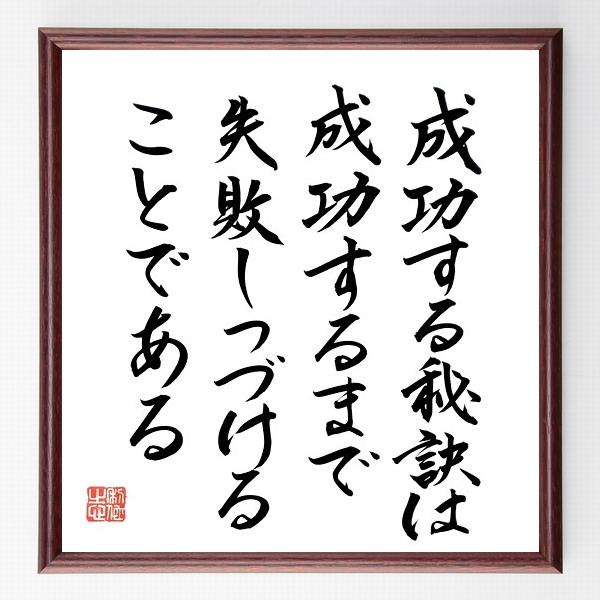 成功する秘訣は
成功するまで
失敗しつづける
ことである